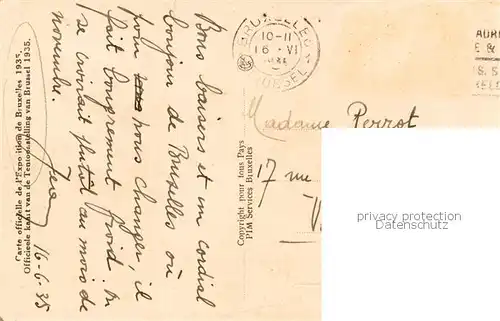 Carte officielle de l'Exposition de Bruxelles 1935.
Officieele kaart van de Tentoonstelling van Brussel 1935.
Bons baisers et un cordial
bonjour de Bruxelles où
pour nous changer, il
fait bougrement froid. On
se croirait plutôt au mois de
novembre.
16-6-35
Copyright pour tous Pays
PIM Services Bruxelles
BRUXELLES
10-11
16 VI
BRUSSEL
Madame Perrot
17 rue
privacy protection
OldThing